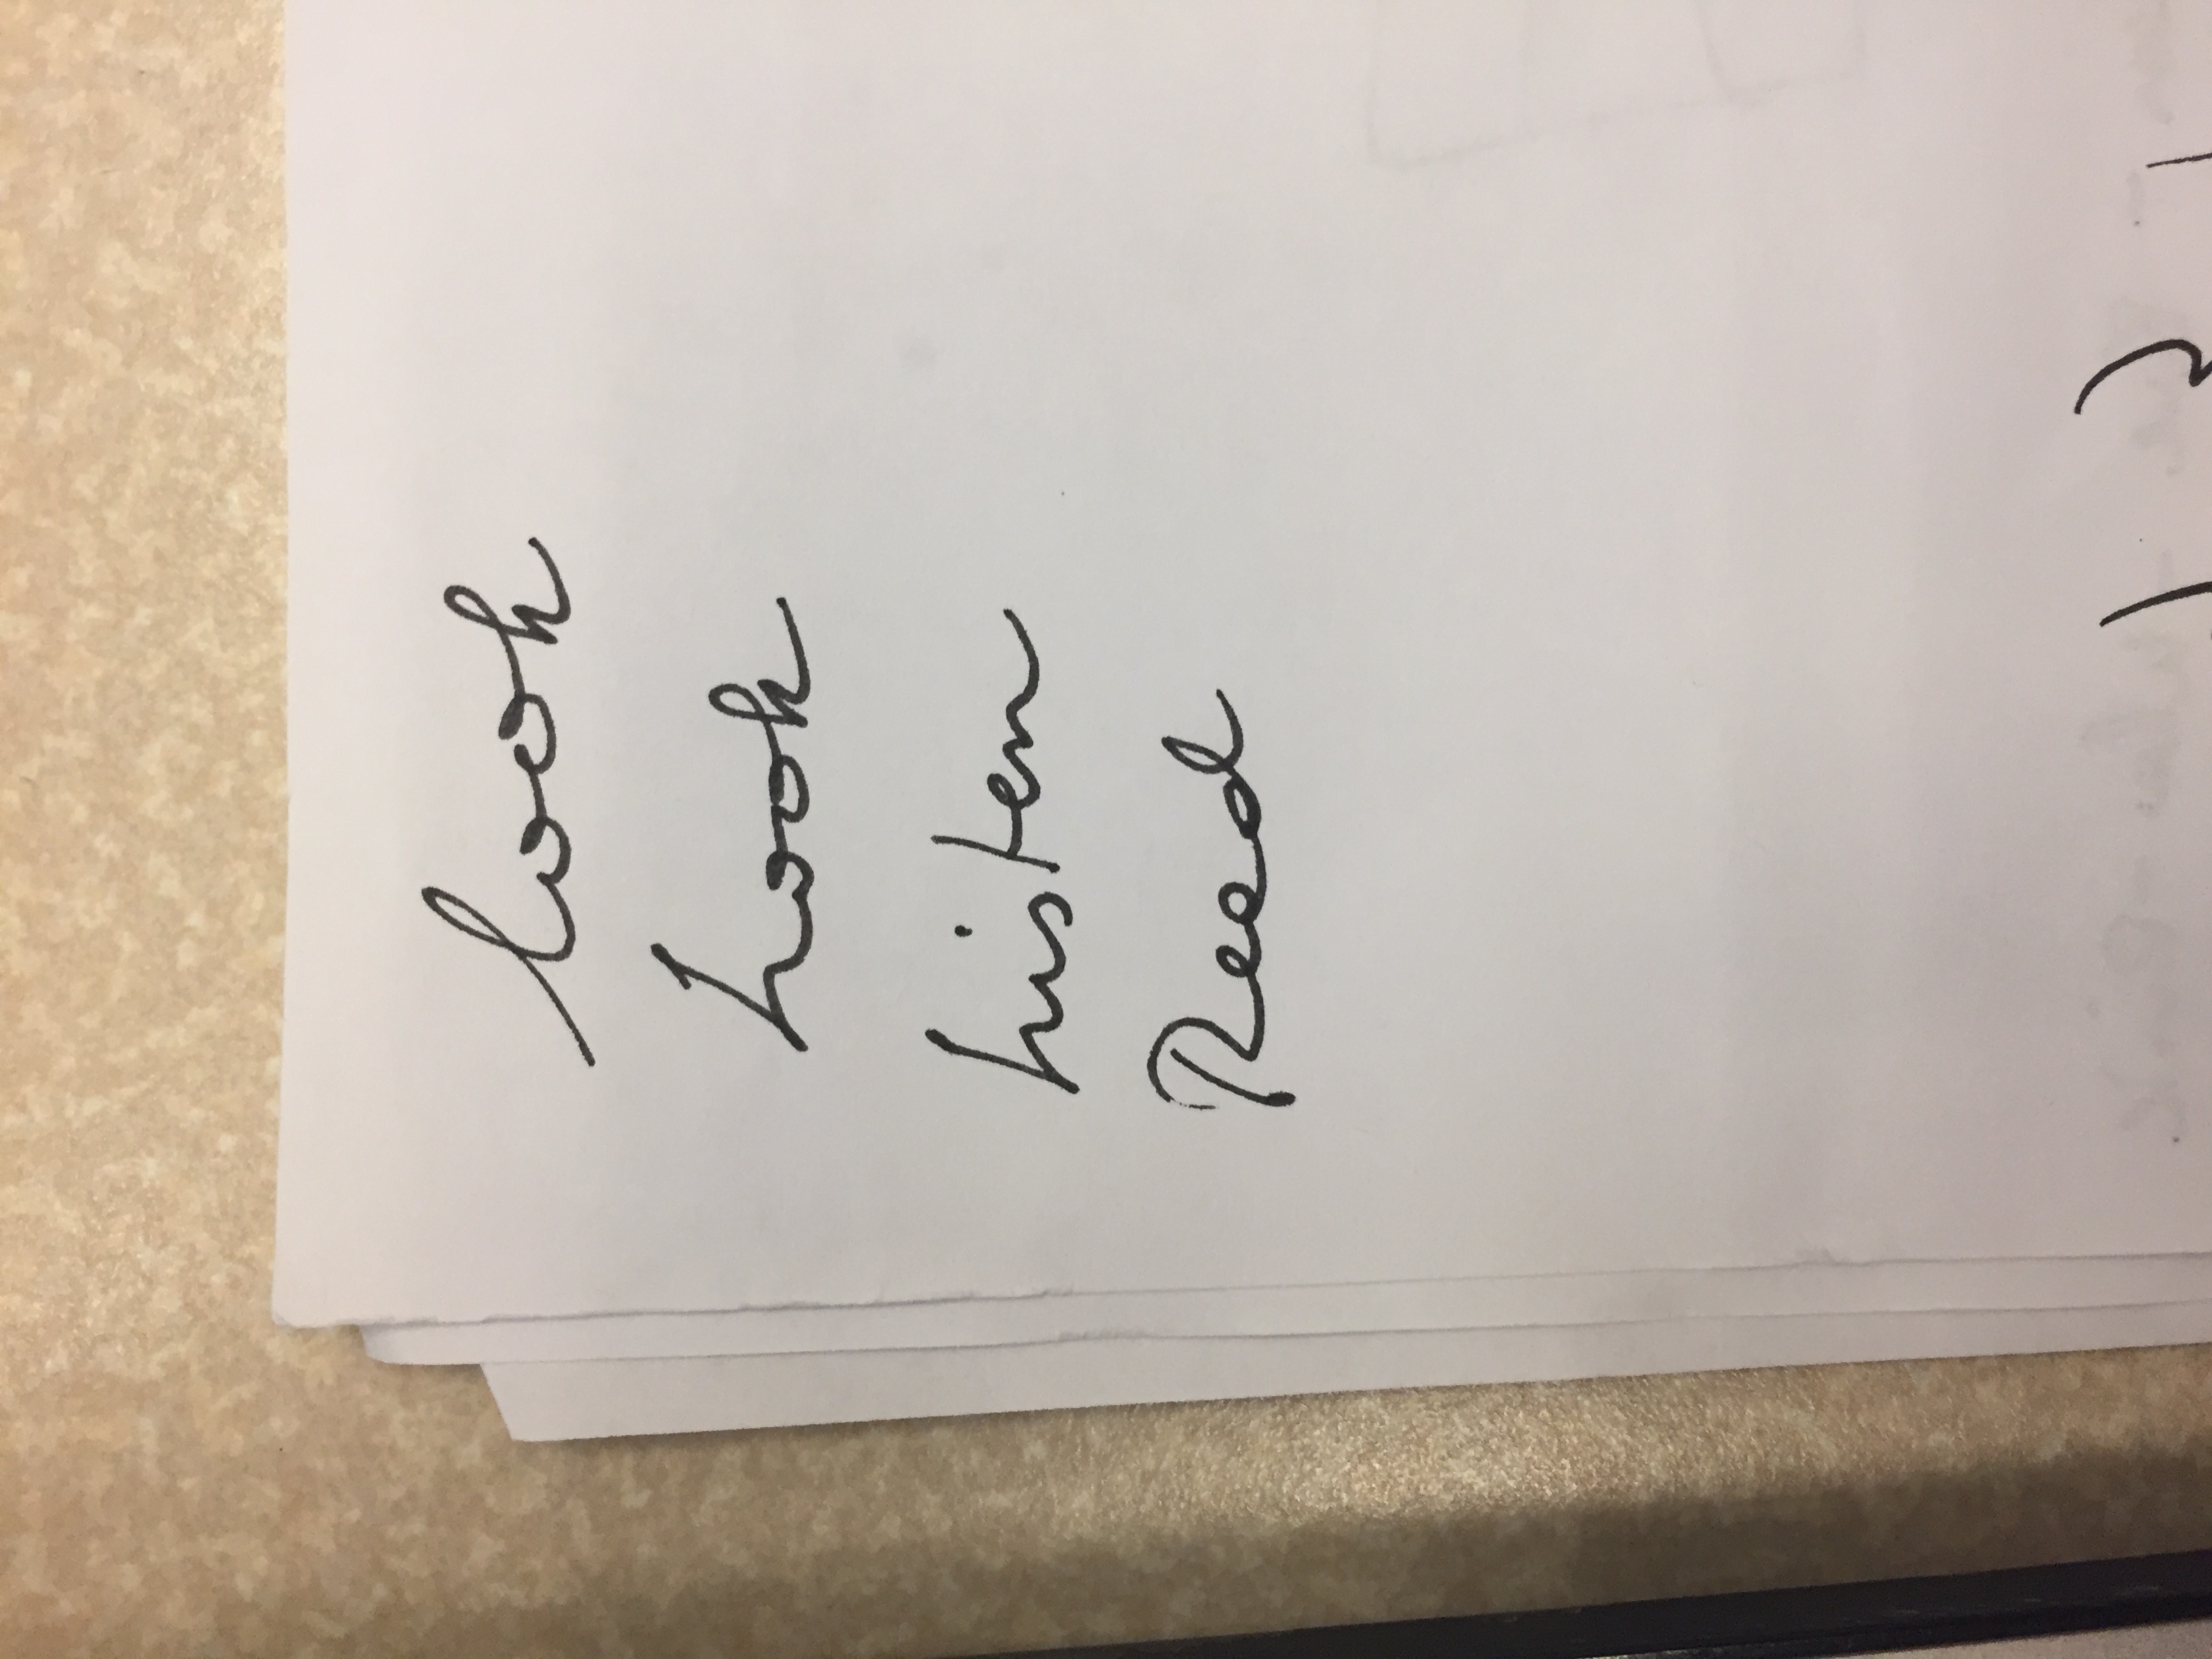 look
Look
Listen
Read